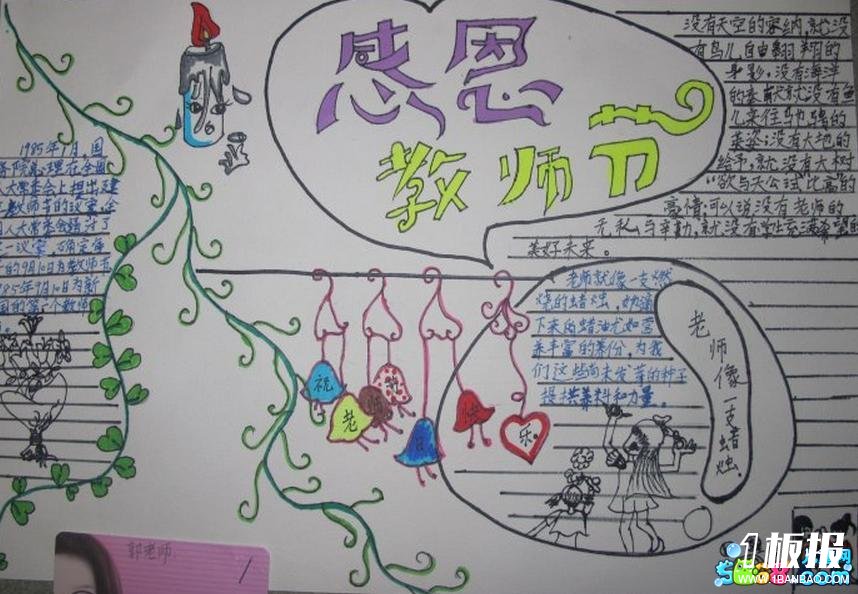 感恩
教师节
没有天空的容纳,就没
有鸟儿自由翱翔的
身影,没有海洋
的奉献就没有鱼
儿来往驰骋的
英姿;没有大地的
给予,就没有大树
"欲与天公试比高"的
豪情,可以说没有老师的
无私与辛勤,就没有学生充满希望的
美好未来。
1985年1月,国
务院总理在全国
人大常委会上提出建
教师节的议案,全
国人大常委会
议案,确定每
的9月10日为教师节
985年9月10日为新
国的第一个教师
祝
老
师
节
日
快
乐
老师就像一支燃
烧的蜡烛,
下来的蜡油尤如营
养丰富的养份,为我
们这些尚未发芽的种子
提供养料和力量。
老师像一支蜡烛
郭老师
1板报
WWW.1BANBAO.COM
.com